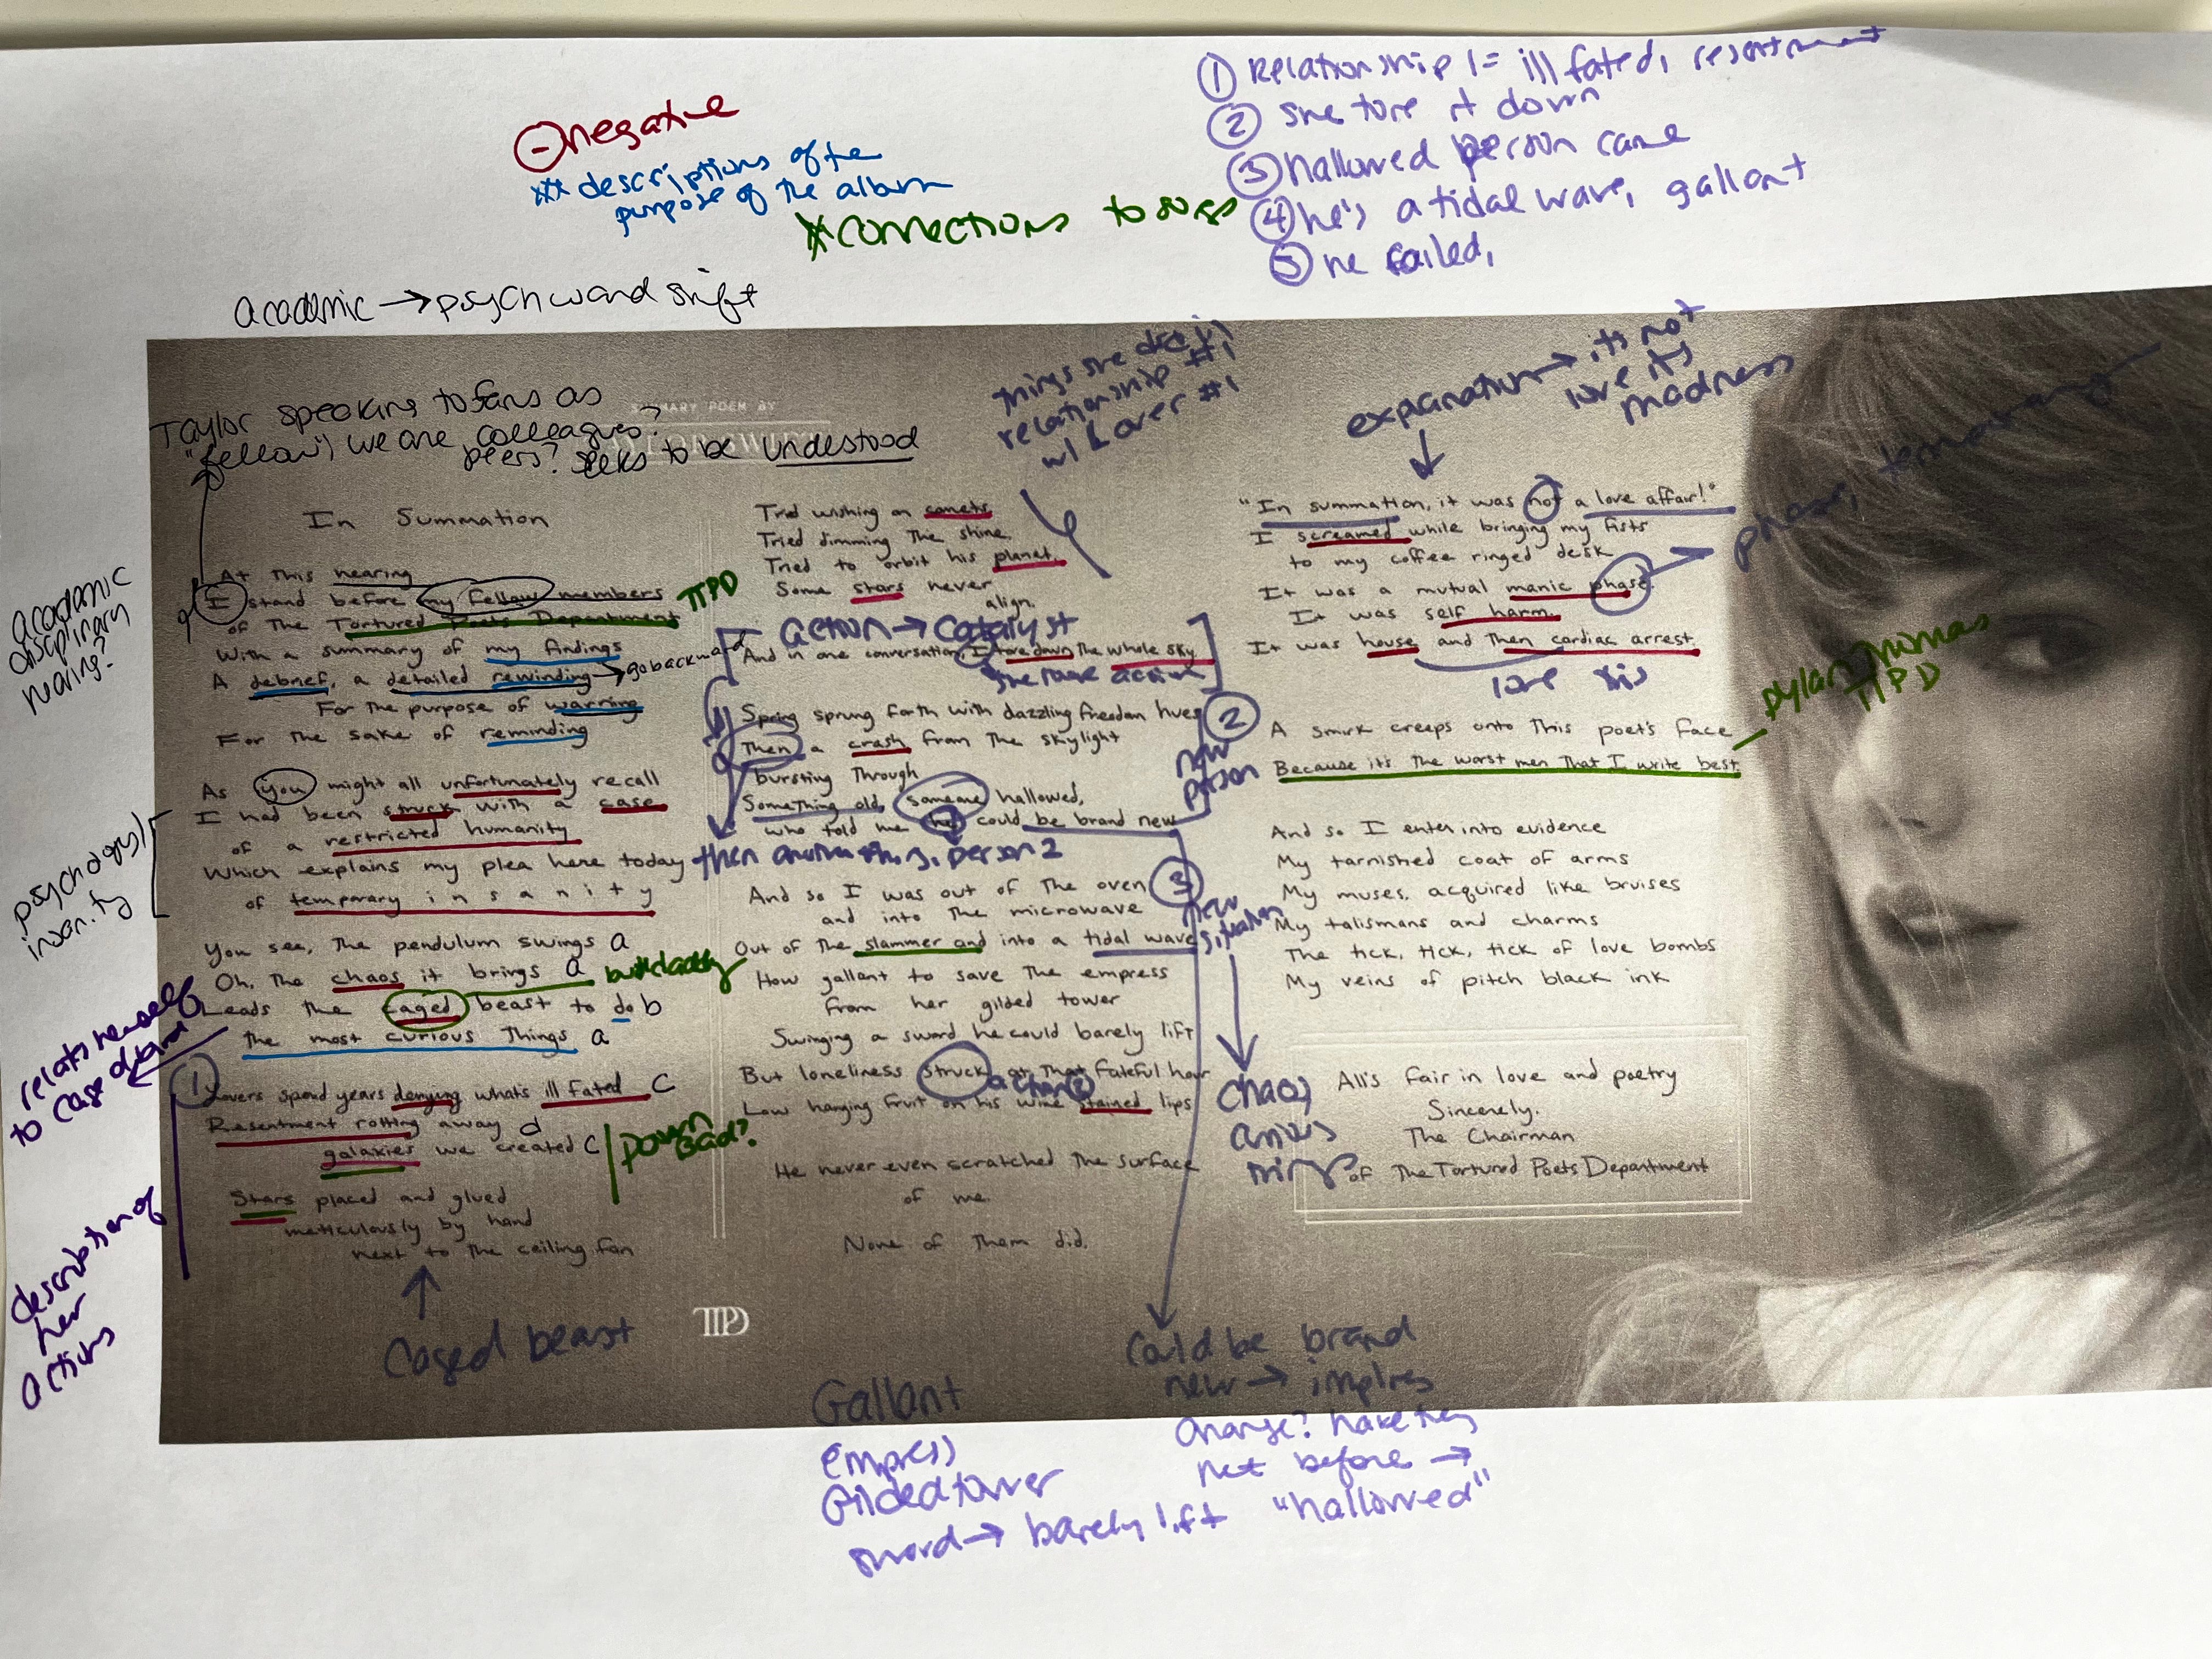 ① Relationship 1= ill fated, resentment
② she tore it down
③ hallowed person came
④ he's a tidal wave, gallant
⑤ he failed,
⊖ negative
*** descriptions of the
purpose of the album
* connections to songs
academic → psych ward shift
Taylor speaking to fans as
"fellow", we are colleagues?
peers? seeks to be understood
SUMMARY POEM BY
things she did in
relationship #1
w/ Lover #1
explanation → it's not
love it's
madness
phase, temporary
academic
disciplinary
hearing?
psychology/
insanity
relates herself
to caged beast
description of
her
actions
In Summation
At this hearing
I stand before my fellow members
TTPD
of the Tortured Poets Department
With a summary of my findings
A debrief, a detailed rewinding
→ go backward
For the purpose of warning
For the sake of reminding
As you might all unfortunately recall
I had been struck with a case
of a restricted humanity
Which explains my plea here today
of temporary i n s a n i t y
You see, the pendulum swings a
Oh, the chaos it brings a
but daddy
Leads the caged beast to do b
The most curious things a
① Lovers spend years denying what's ill fated c
Resentment rotting away d
galaxies we created c
Down Bad?
Stars placed and glued
meticulously by hand
next to the ceiling fan
Caged beast
Tried wishing on comets.
Tried dimming the shine.
Tried to orbit his planet.
Some stars never
align.
action → catalyst
And in one conversation, I tore down the whole sky.
she took action
Spring sprung forth with dazzling freedom hues
②
Then a crash from the skylight
bursting through
new
person
Something old, someone hallowed,
who told me he could be brand new
then another thing, person 2
And so I was out of the oven
③
and into the microwave
new
situation
Out of the slammer and into a tidal wave
How gallant to save the empress
from her gilded tower
Swinging a sword he could barely lift
But loneliness struck at that fateful hour
action
Low hanging fruit on his wine stained lips
He never even scratched the surface
of me.
None of them did.
TTPD
Gallant
empress
Gilded tower
sword → barely lift
could be brand
new → implies
change? have they
met before →
"hallowed"
chaos
"In summation, it was not a love affair!"
I screamed while bringing my fists
to my coffee ringed desk
It was a mutual manic phase.
It was self harm.
It was house and then cardiac arrest.
love this
Dylan Thomas
TTPD
A smirk creeps onto this poet's face
Because it's the worst men that I write best.
And so I enter into evidence
My tarnished coat of arms
My muses, acquired like bruises
My talismans and charms
The tick, tick, tick of love bombs
My veins of pitch black ink
All's fair in love and poetry
Sincerely,
The Chairman
of The Tortured Poets Department